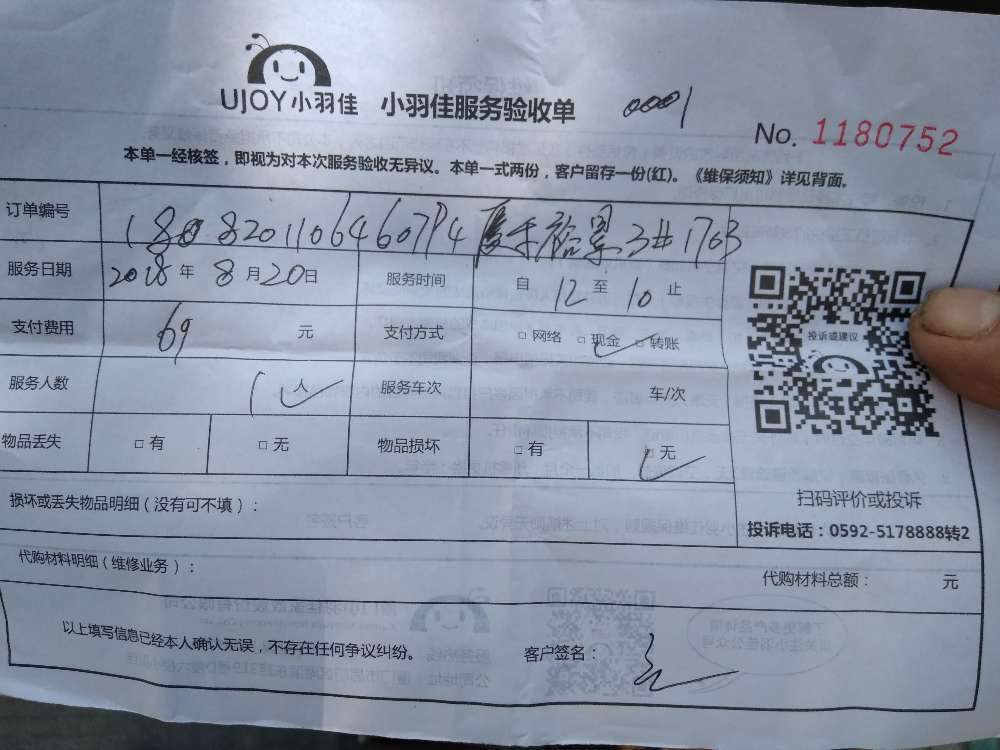 UJOY小羽佳 小羽佳服务验收单 0001
No. 1180752
本单一经核签，即视为对本次服务验收无异议。本单一式两份，客户留存一份(红)。《维保须知》详见背面。
订单编号 3#1703
服务日期 2018年8月20日 服务时间 自12至10止
支付费用 69元 支付方式 □网络 □现金 □转账
服务人数 1人 服务车次 车/次
物品丢失 □有 □无 物品损坏 □有 □无
投诉或建议
扫码评价或投诉
投诉电话：0592-5178888转2
损坏或丢失物品明细（没有可不填）：
代购材料明细（维修业务）： 代购材料总额： 元
以上填写信息已经本人确认无误，不存在任何争议纠纷。 客户签名：